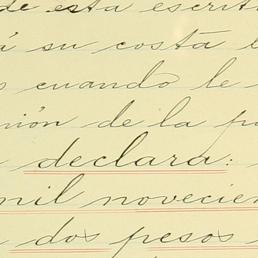 de esta escrit
á su costa l
s cuando le
nión de la p
declara:
mil novecien
dos pesos